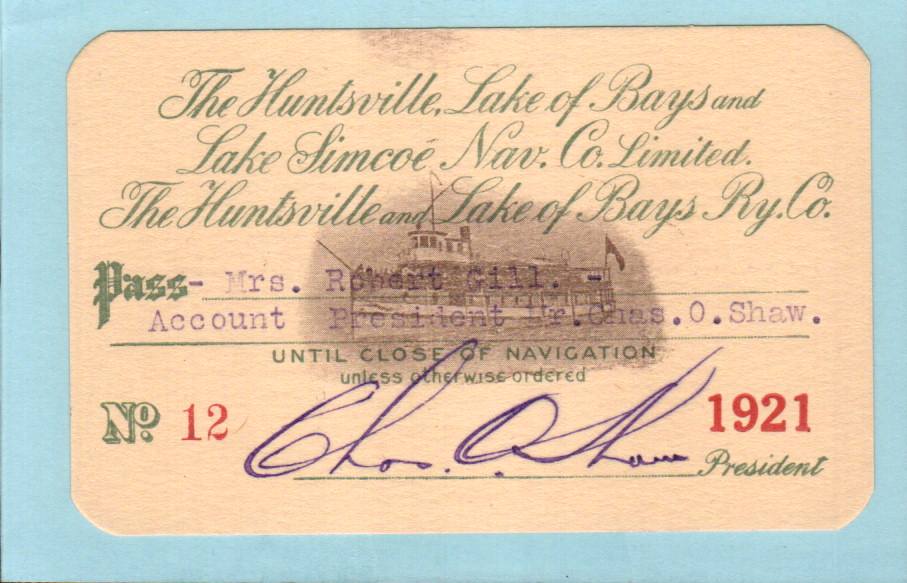 The Huntsville, Lake of Bays and
Lake Simcoé Nav. Co. Limited.
The Huntsville and Lake of Bays Ry. Co.
Pass - Mrs. Robert Gill. -
Account President Mr. Chas. O. Shaw.
UNTIL CLOSE OF NAVIGATION
unless otherwise ordered
No. 12 1921
Chas. O. Shaw President